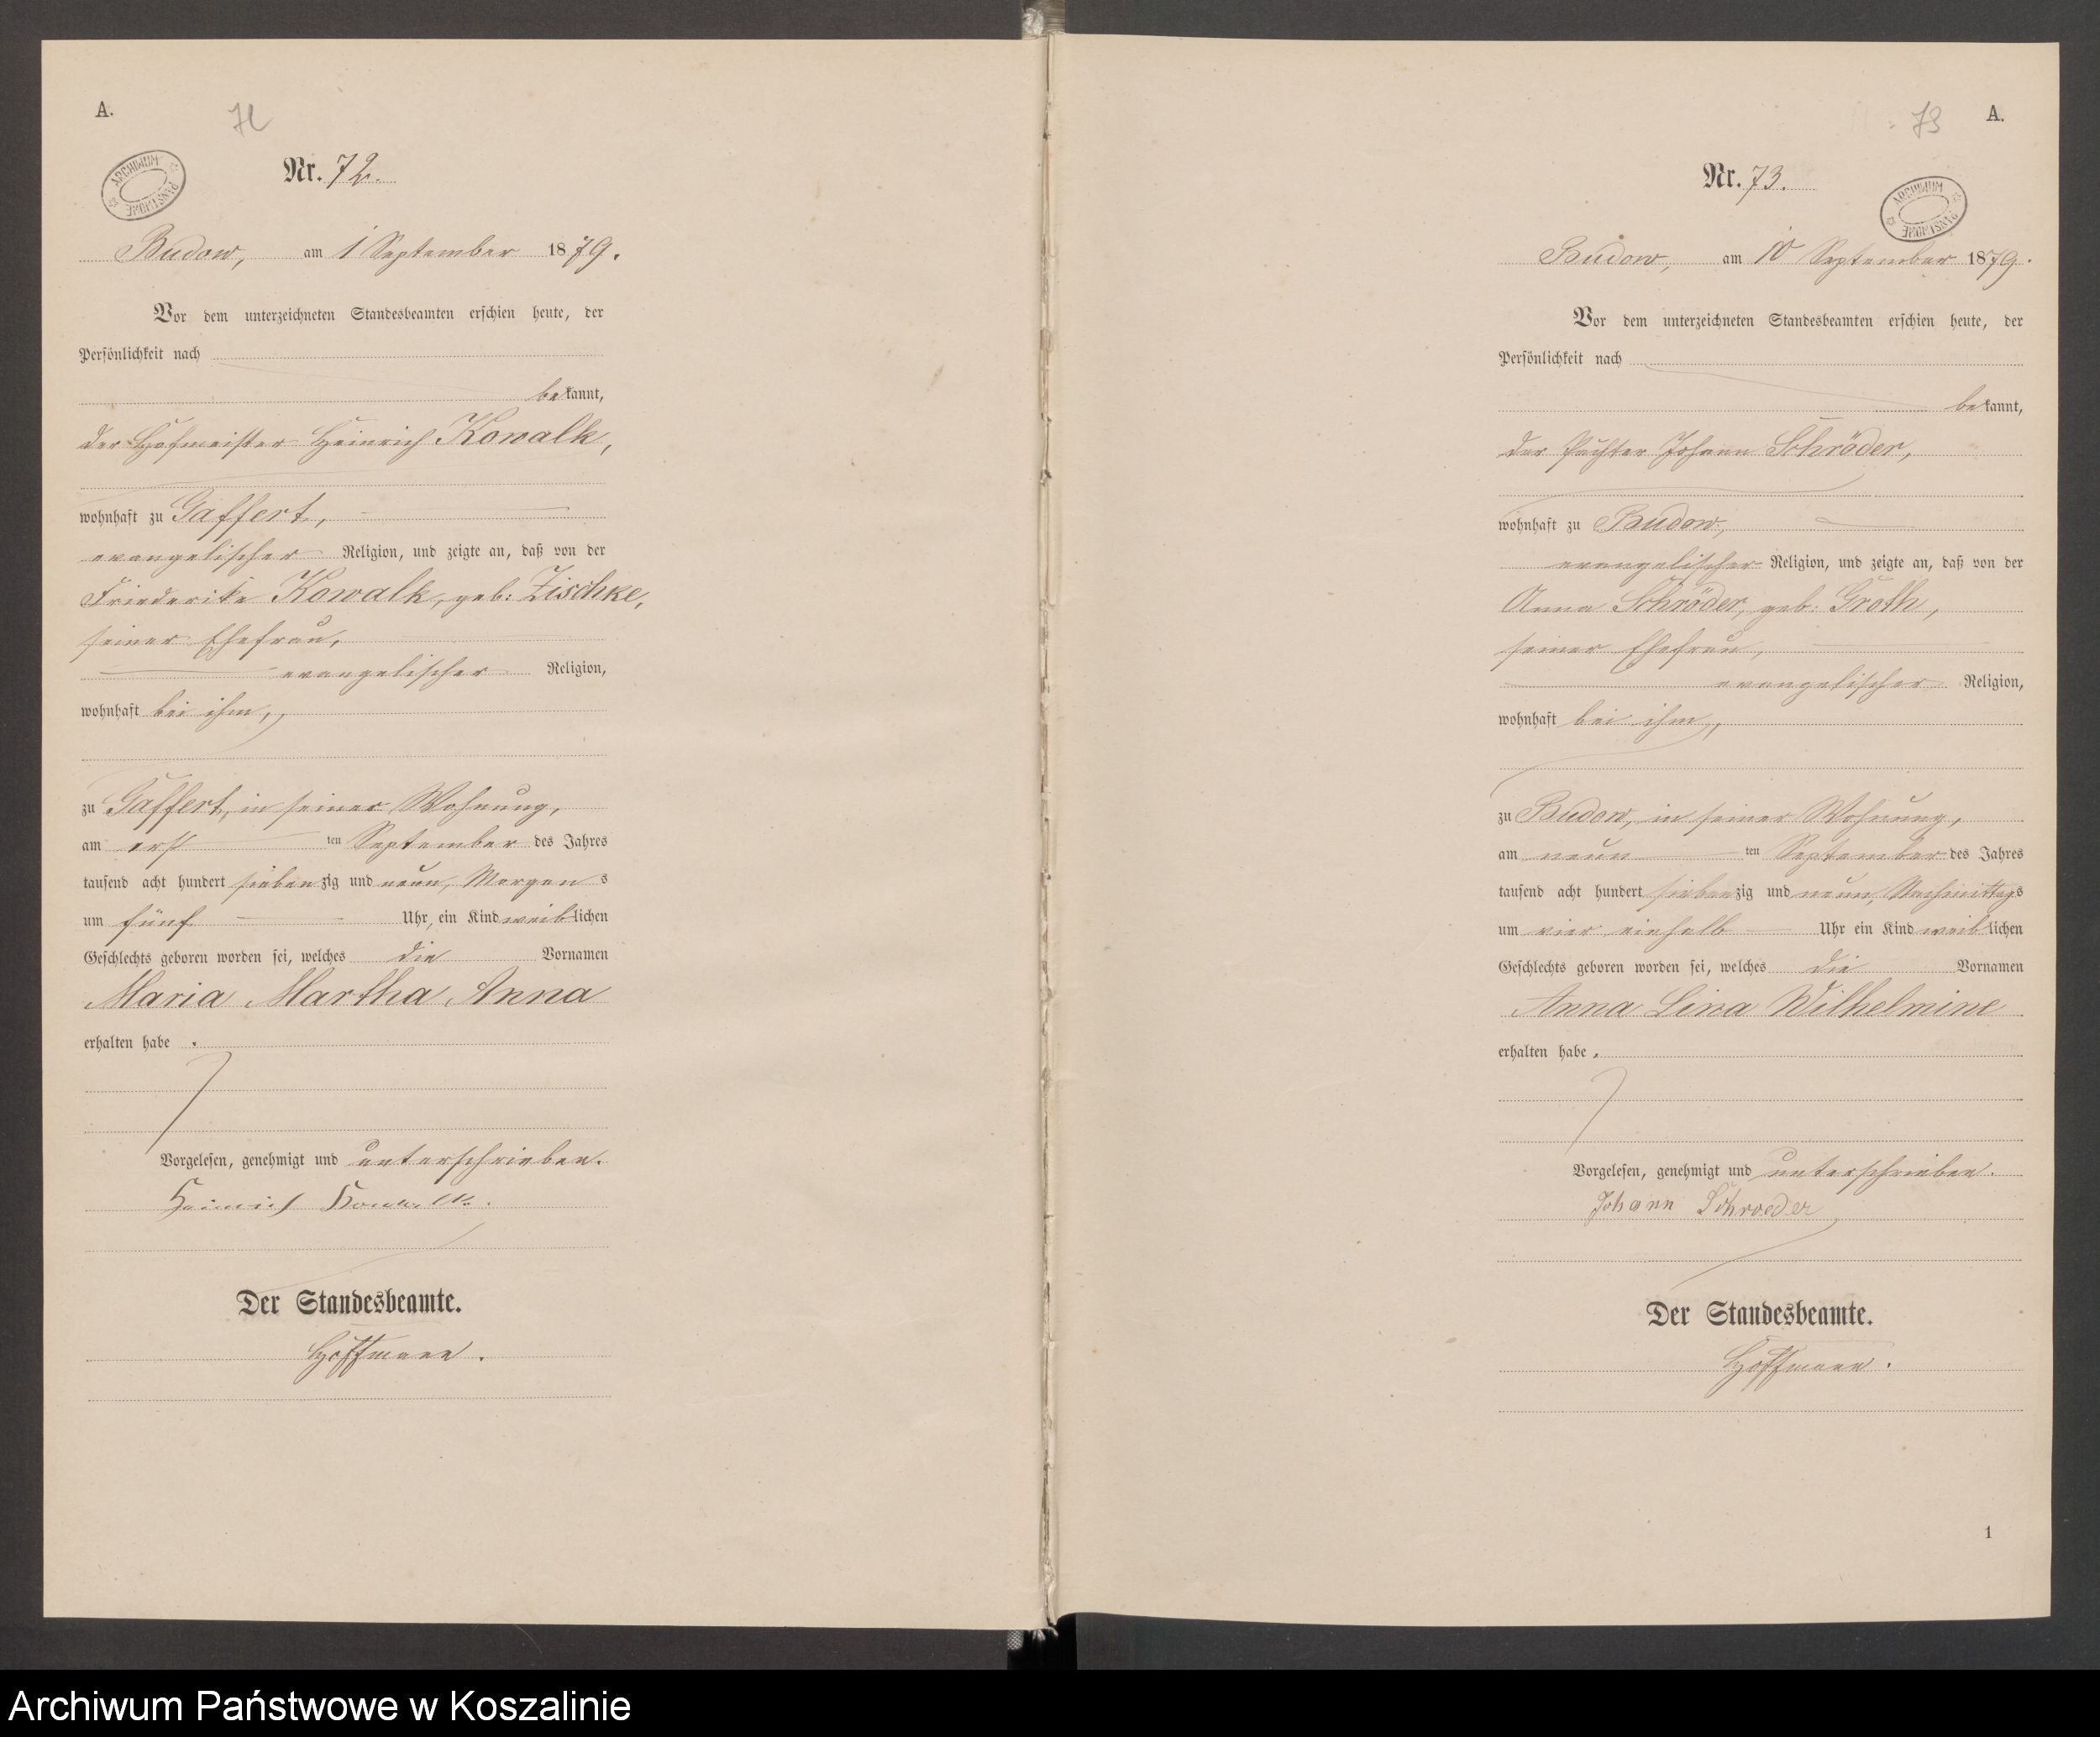 A.
72
Nr. 72.
ARCHIWUM PAŃSTWOWE
Budow, am 1 September 1879.
Vor dem unterzeichneten Standesbeamten erschien heute, der
Persönlichkeit nach
bekannt,
der Hofmeister Heinrich Kowalk,
wohnhaft zu Gaffert,
evangelischer Religion, und zeigte an, daß von der
Friederike Kowalk, geb: Zischke,
seiner Ehefrau,
evangelischer Religion,
wohnhaft bei ihm,
zu Gaffert, in seiner Wohnung,
am erst ten September des Jahres
tausend acht hundert siebenzig und neun, Morgens
um fünf Uhr, ein Kind weiblichen
Geschlechts geboren worden sei, welches die Vornamen
Maria Martha Anna
erhalten habe.
Vorgelesen, genehmigt und unterschrieben.
Heinrich Kowalk.
Der Standesbeamte.
Hoffmann.
73
A.
Nr. 73.
ARCHIWUM PAŃSTWOWE
Budow, am 10 September 1879.
Vor dem unterzeichneten Standesbeamten erschien heute, der
Persönlichkeit nach
bekannt,
der Pächter Johann Schröder,
wohnhaft zu Budow,
evangelischer Religion, und zeigte an, daß von der
Anna Schröder, geb: Groth,
seiner Ehefrau,
evangelischer Religion,
wohnhaft bei ihm,
zu Budow, in seiner Wohnung,
am neun ten September des Jahres
tausend acht hundert siebenzig und neun, Nachmittags
um vier einhalb Uhr ein Kind weiblichen
Geschlechts geboren worden sei, welches die Vornamen
Anna Lina Wilhelmine
erhalten habe.
Vorgelesen, genehmigt und unterschrieben.
Johann Schroeder
Der Standesbeamte.
Hoffmann.
1
Archiwum Państwowe w Koszalinie